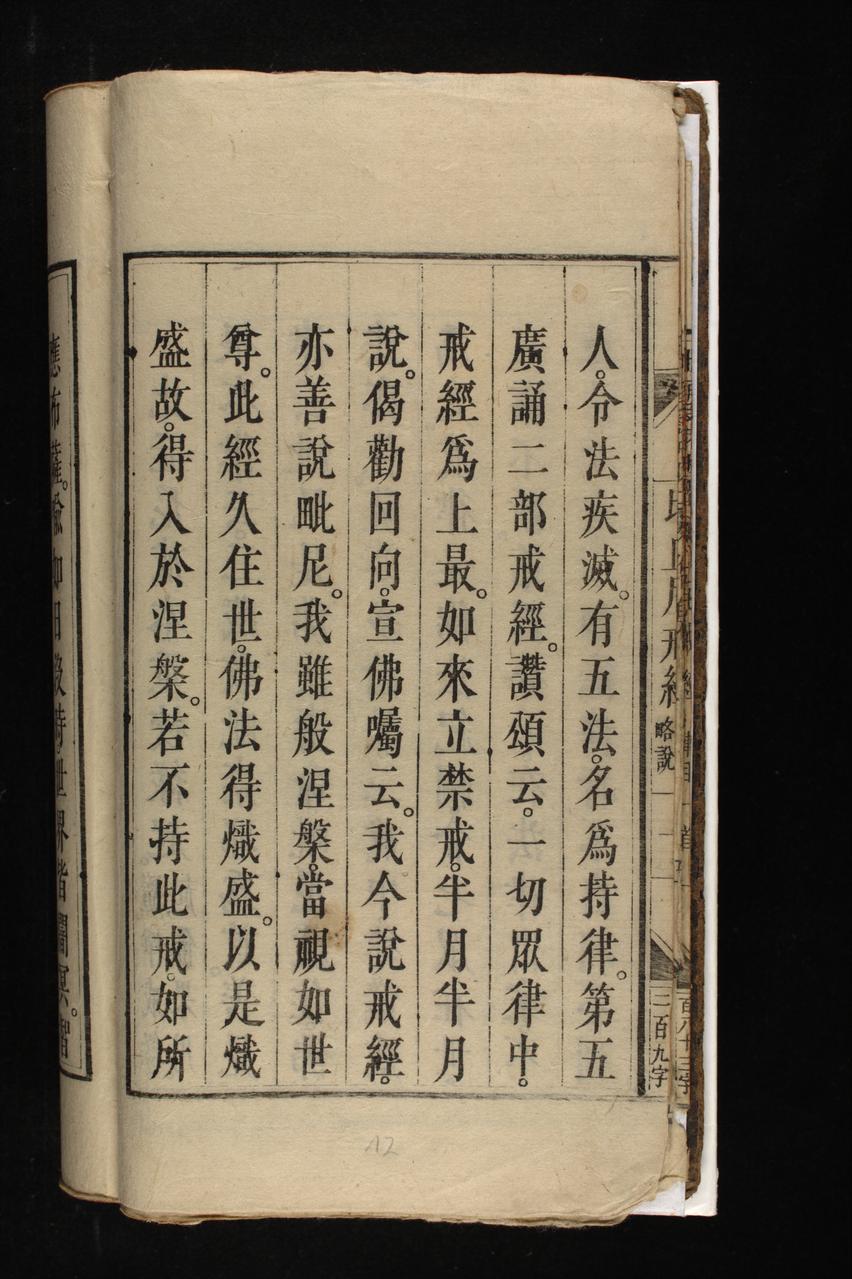 人。令法疾滅。有五法。名爲持律。第五
廣誦二部戒經。讚頌云。一切眾律中。
戒經爲上最。如來立禁戒。半月半月
說。偈勸回向。宣佛囑云。我今說戒經。
亦善說毗尼。我雖般涅槃。當視如世
尊。此經久住世。佛法得熾盛。以是熾
盛故。得入於涅槃。若不持此戒。如所
應布薩。喻如日沒時世界皆闇冥。
略說
三百九字
12